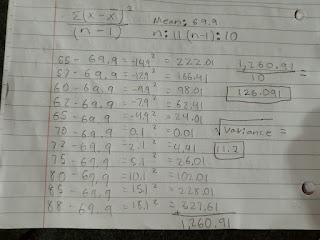 Σ(x - x̄)²
(n - 1)
Mean: 69.9
n: 11 (n-1): 10
55 - 69.9 = -14.9² = 222.01
57 - 69.9 = -12.9² = 166.41
60 - 69.9 = -9.9² = 98.01
62 - 69.9 = -7.9² = 62.41
65 - 69.9 = -4.9² = 24.01
70 - 69.9 = 0.1² = 0.01
72 - 69.9 = 2.1² = 4.41
75 - 69.9 = 5.1² = 26.01
80 - 69.9 = 10.1² = 102.01
85 - 69.9 = 15.1² = 228.01
88 - 69.9 = 18.1² = + 327.61
1,260.91
1,260.91 =
10
126.091
√variance =
11.2